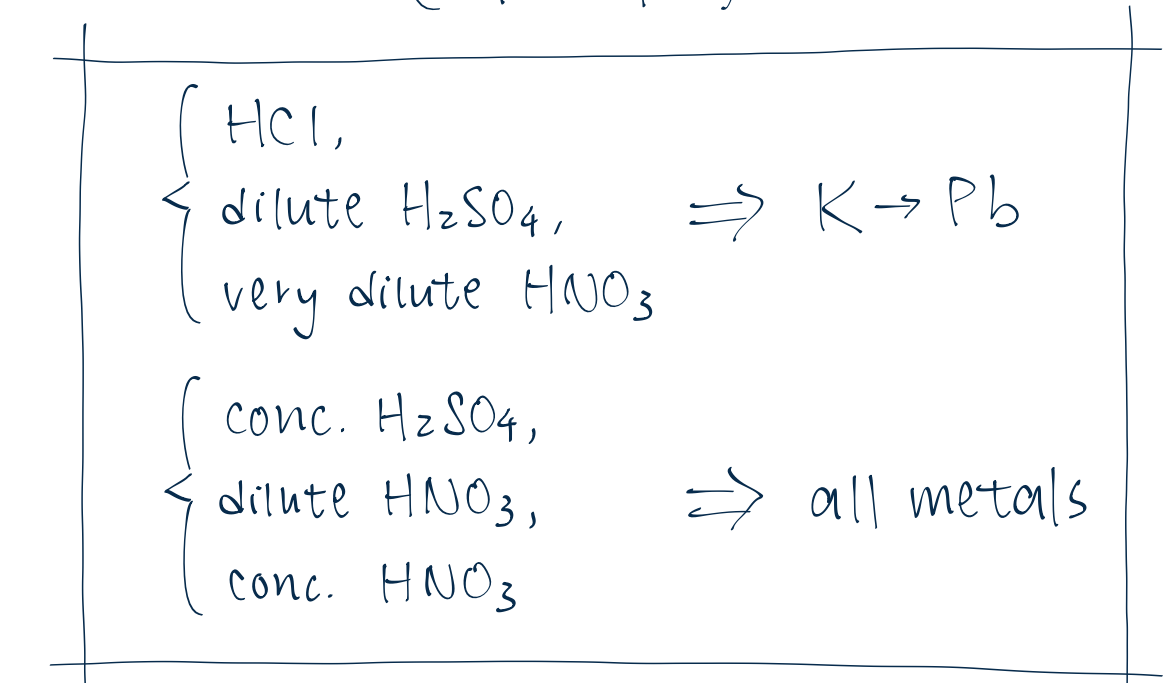 HCl,
dilute H₂SO₄, ⇒ K → Pb
very dilute HNO₃
conc. H₂SO₄,
dilute HNO₃, ⇒ all metals
conc. HNO₃